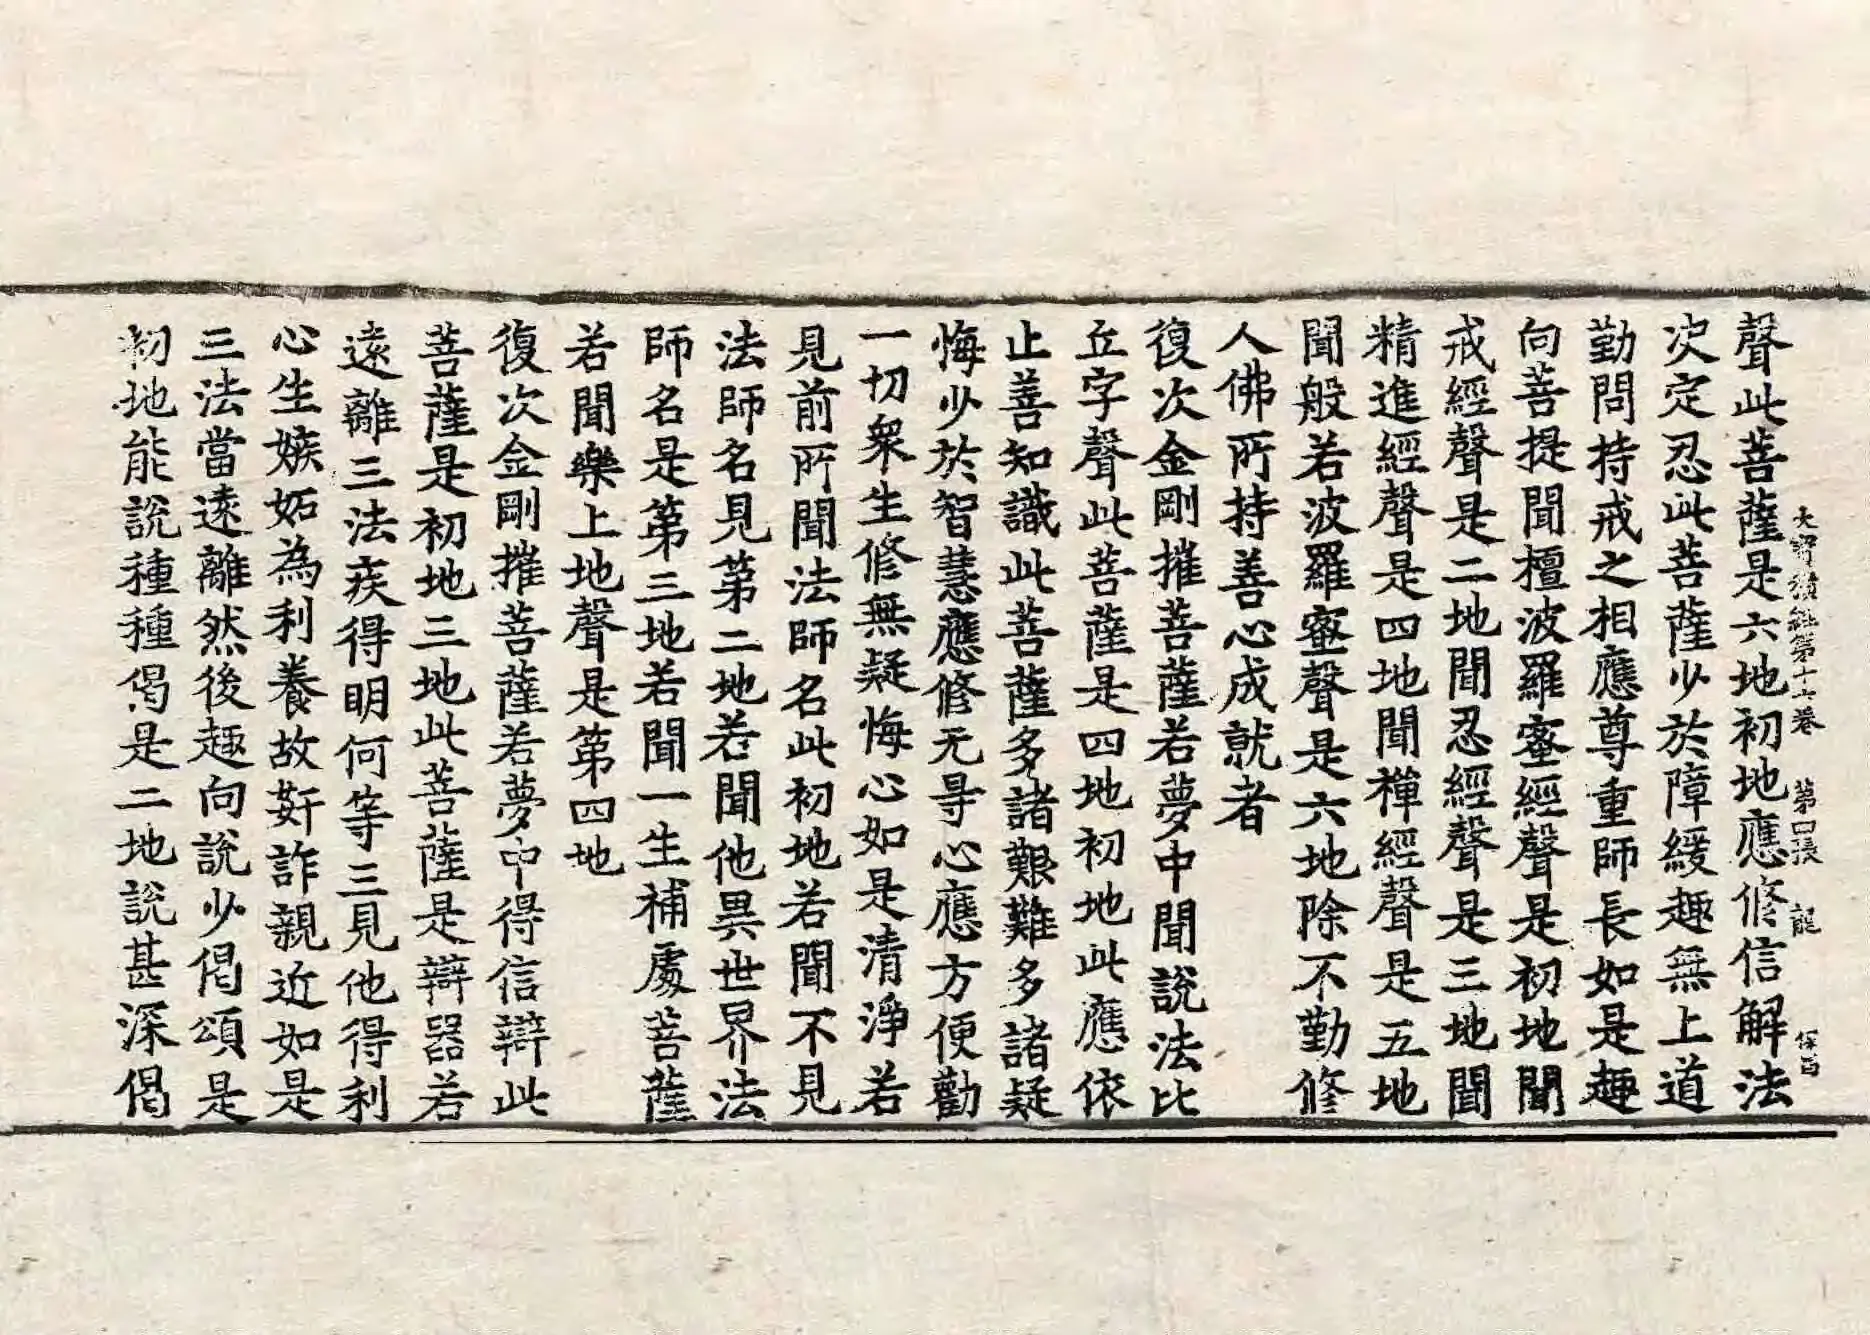 聲此菩薩是六地初地應修信解法
大寶積經第十六卷 第四張 龍
次定忍此菩薩少於障緩趣無上道
勤問持戒之相應尊重師長如是趣
向菩提聞檀波羅蜜經聲是初地聞
戒經聲是二地聞忍經聲是三地聞
精進經聲是四地聞禪經聲是五地
聞般若波羅蜜聲是六地除不勤修
人佛所持善心成就者
復次金剛摧菩薩若夢中聞說法比
丘字聲此菩薩是四地初地此應依
止善知識此菩薩多諸艱難多諸疑
悔少於智慧應修无㝵心應方便勸
一切衆生修無疑悔心如是清淨若
見前所聞法師名此初地若聞不見
法師名見第二地若聞他異世界法
師名是第三地若聞一生補處菩薩
若聞樂上地聲是第四地
復次金剛摧菩薩若夢中得信辯此
菩薩是初地三地此菩薩是辯器若
遠離三法疾得明何等三見他得利
心生嫉妬為利養故姧詐親近如是
三法當遠離然後趣向說少偈頌是
初地能說種種偈是二地說甚深偈